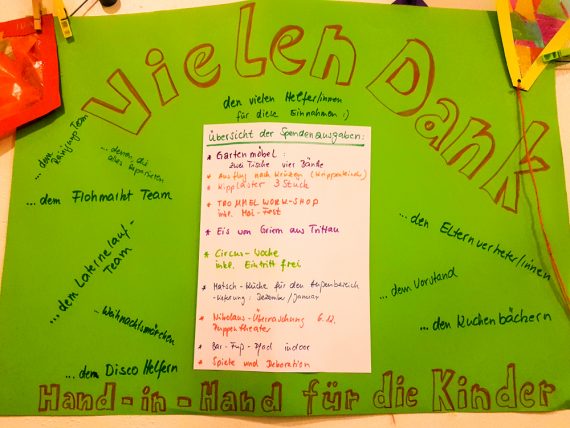 Vielen Dank
den vielen Helfer/innen
für diese Einnahmen :)
... dem Reinigungs Team
... denen, die
alles reparieren
... dem Flohmarkt Team
... dem Laternelauf-
Team
... Weihnachtsmärchen
... dem Disco Helfern
Übersicht der Spendenausgaben:
* Gartenmöbel :
zwei Tische vier Bänke
* Ausflug nach (Krippenkinds)
* Kipplaster 3 Stück
* TROMMEL WORK-SHOP
inkl. Mai-Fest
* Eis von Griem aus Trittau
* Circus-Woche
inkl. Eintritt frei
* Matsch-Küche für den Außenbereich
-Lieferung: Dezember/Januar
* Nikolaus-Überraschung 6.12.
Puppentheater
* Bar-Fuß-Pfad indoor
* Spiele und Dekoration
... den Elternvertreter/innen
... dem Vorstand
... den Kuchenbäckern
Hand-in-Hand für die Kinder